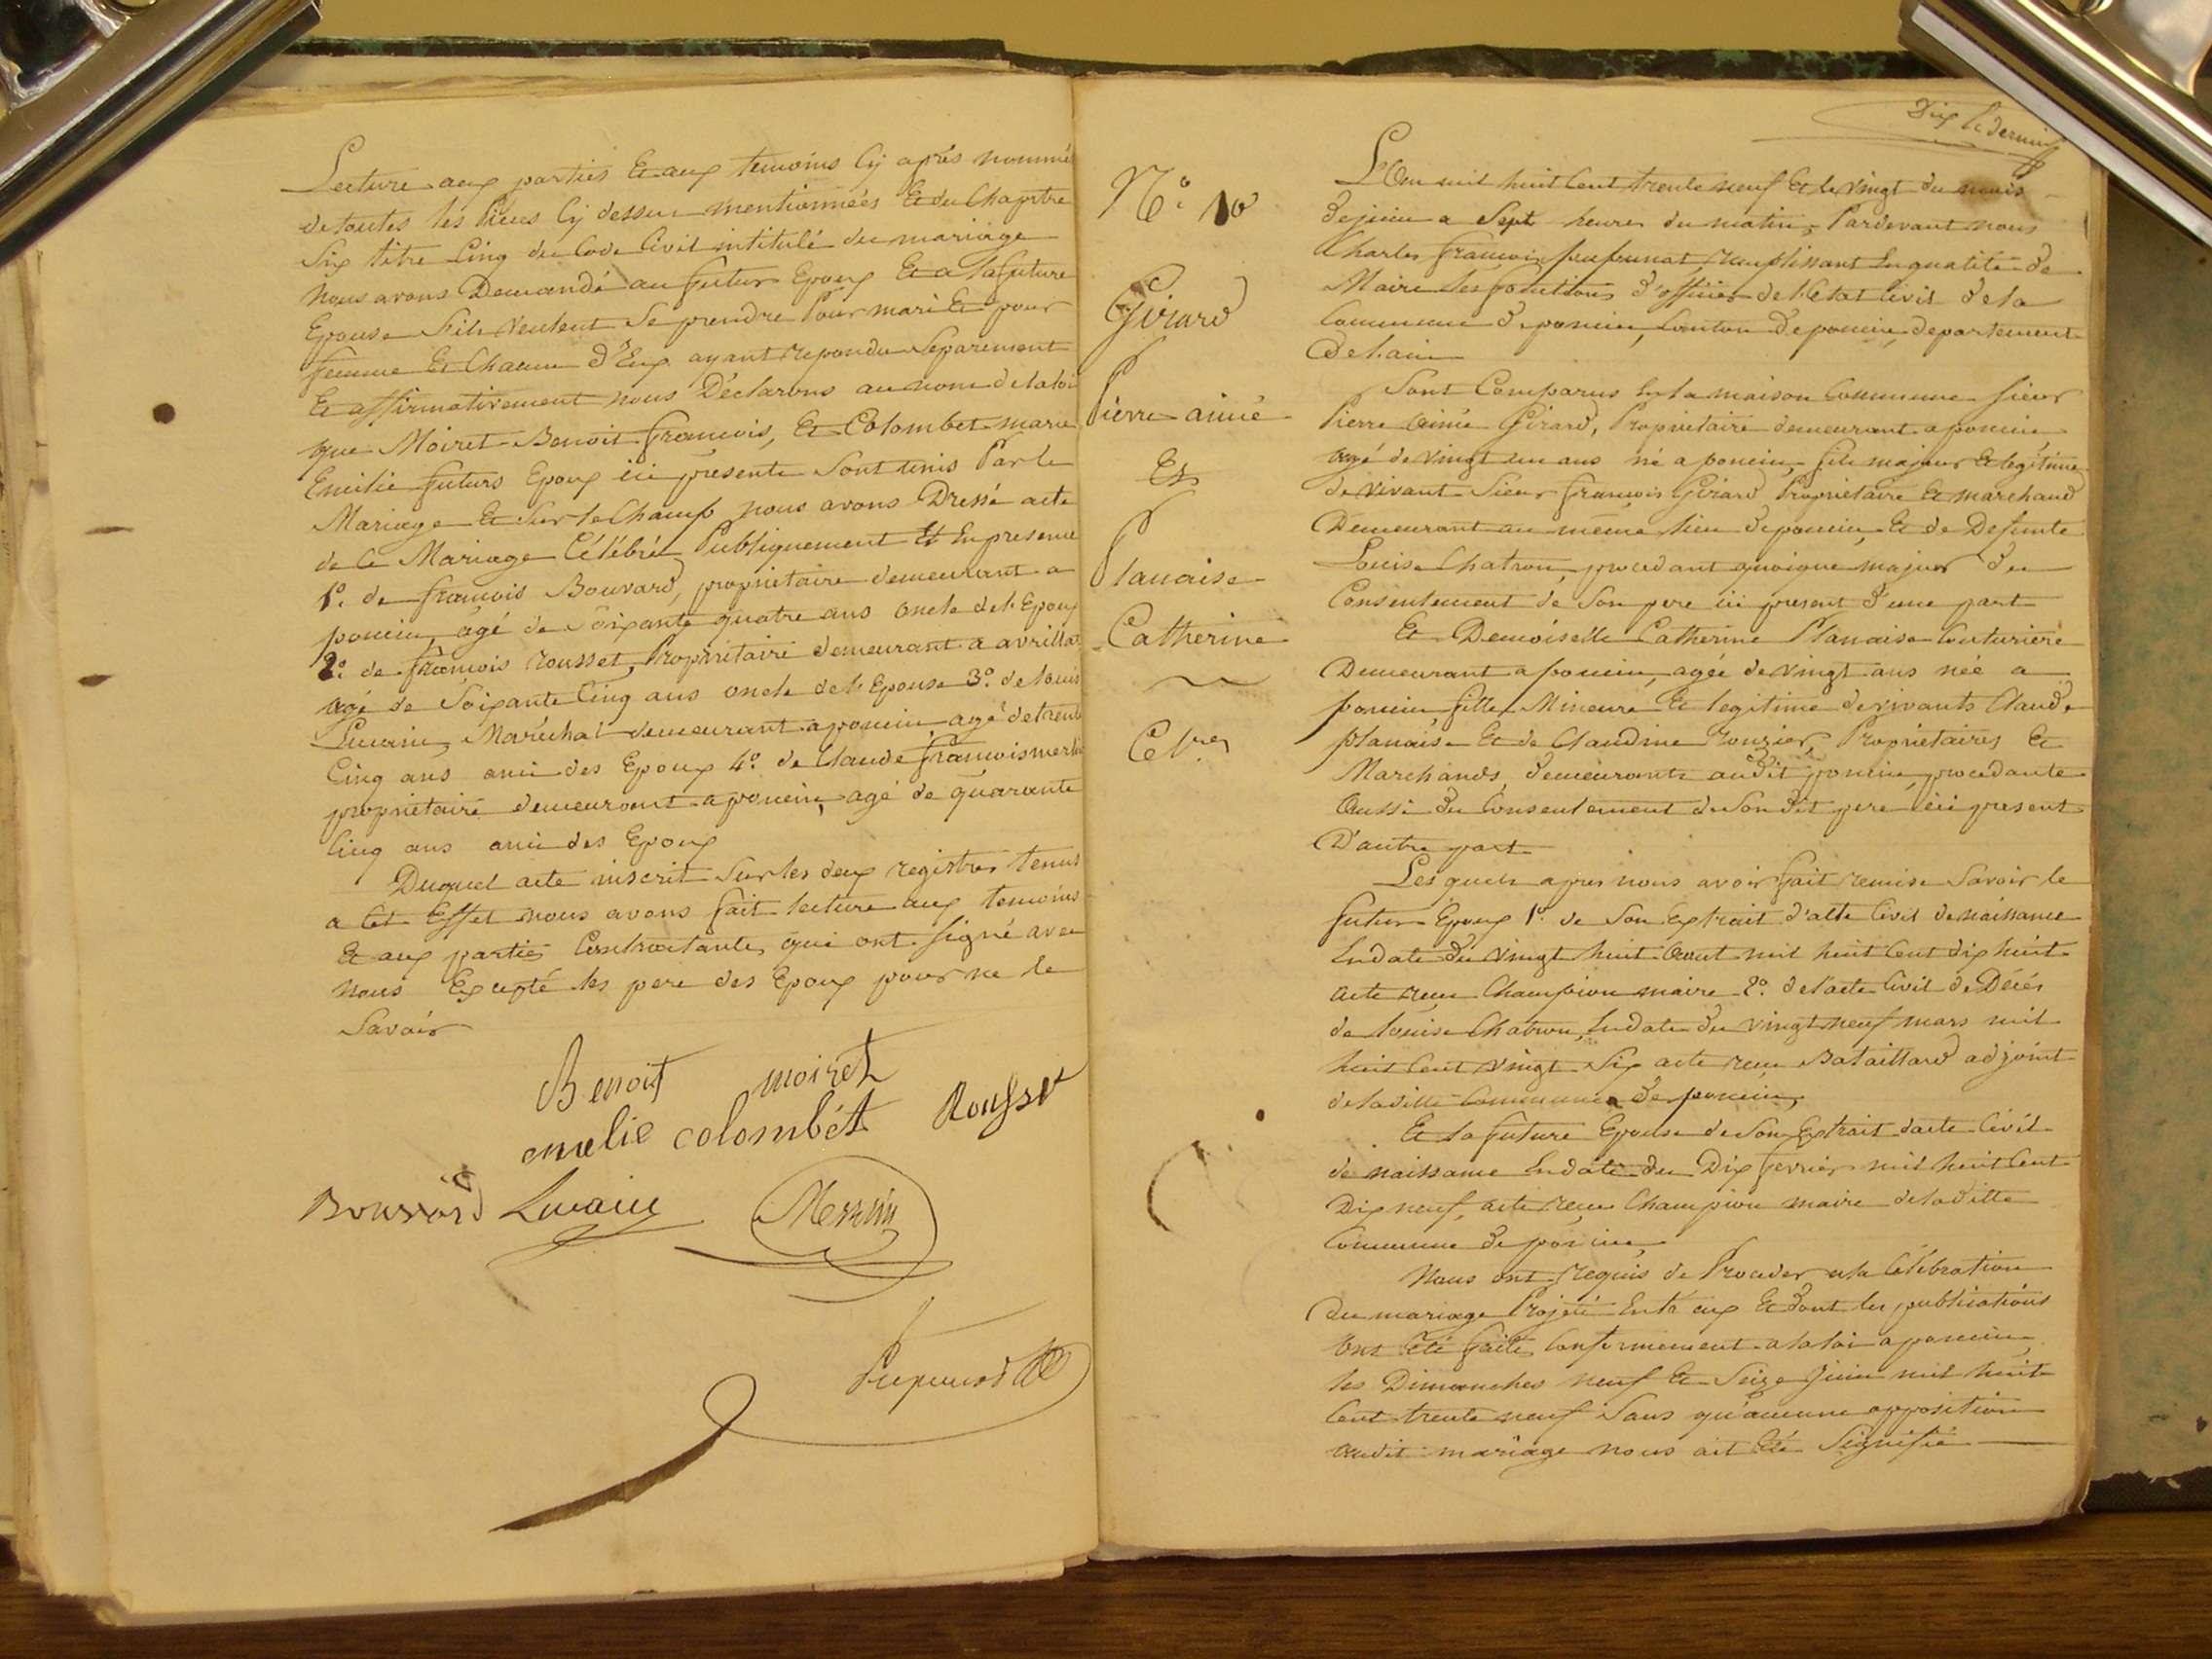 Lecture aux parties Et aux temoins Cy après nommé
de toutes les Pièces Cy dessus mentionnées Et du Chapitre
Six titre Cinq du Code Civil intitulé du mariage
Nous avons Demandé au futur Epoux Et a la future
Epouse S'ils veulent Se prendre Pour mari Et pour
femme Et Chacun d'Eux ayant repondu Separement
Et affirmativement nous Déclarons au nom de la loi
que Moiret Benoit françois, Et Colombet marie
Emilie futurs Epoux ici présents Sont unis Par le
Mariage Et Sur le Champ nous avons Dressé acte
de Ce Mariage Célébré Publiquement Et En presence
1º. de françois Bouvard, propriétaire demeurant a
poncin, agé de Soixante quatre ans oncle de l'Epoux
2º. de françois rousset, Propriétaire demeurant a avrillat
agé de Soixante Cinq ans oncle de l'Epouse 3º. de louis
Lucain, Maréchal demeurant a poncin agé de trente
Cinq ans ami des Epoux 4º. de Claude françois merlin
propriétaire demeurant a poncin, agé de quarante
Cinq ans ami des Epoux
Duquel acte inscrit Sur les deux registres tenus
a Cet Effet nous avons fait lecture aux temoins
Et aux parties Contractantes qui ont Signé avec
nous Excepté les pere des Epoux pour ne le
Savoir
Benoit moiret
emelie colombét Rousset
Bouvard Lucain Merlin
N.º 10
Girard
Pierre aimé
Et
Planaise
Catherine
Dix le dernier
L'An mil huit Cent trente neuf Et le Vingt du mois
de juin a Sept heures du matin, Pardevant nous
Charles françois pupunat remplissant En qualité de
Maire les fonctions d'officier de l'Etat Civil de la
Commune de poncin, Canton de poncin, departement
de l'ain
Sont Comparus En la maison Commune Sieur
Pierre Aimé Girard, Propriétaire demeurant a poncin
agé de Vingt un ans né a poncin, fils majeur Et légitime
de vivant Sieur françois Girard Propriétaire Et marchand
Demeurant au même lieu de poncin, Et de Defunte
Louise Chatron, procedant quoique majeur du
Consentement de Son pere ici present d'une part
Et Demoiselle Catherine Planaise Couturière
Demeurant a poncin, agée de Vingt ans née a
poncin, fille Mineure Et legitime de vivants Claude
planaise Et de Claudine rouzier, Propriétaires Et
Marchands, demeurants audit poncin, procedante
Aussi du Consentement de Son dit pere ici present
D'autre part
Les quels apres nous avoir fait remise Savoir le
futur Epoux 1º. de Son Extrait d'acte Civil de naissance
En date du Vingt huit Aout mil huit Cent dix huit
acte reçu Champion maire 2º. de l'acte Civil de Décès
de louise Chatron, En date du Vingt neuf mars mil
huit Cent Vingt Six acte reçu Bataillard adjoint
de la dite Commune de poncin,
Et la future Epouse de Son Extrait d'acte Civil
de naissance En date du Dix fevrier mil huit Cent
Dix neuf, acte reçu Champion maire de la dite
Commune de poncin,
Nous ont requis de Proceder a la Célébration
du mariage Projeté Entr'eux Et dont les publications
Ont Eté faites Conformement a la loi a poncin,
les Dimanches neuf Et Seize Juin mil huit
Cent trente neuf Sans qu'aucune opposition
Audit mariage nous ait Eté Signifié